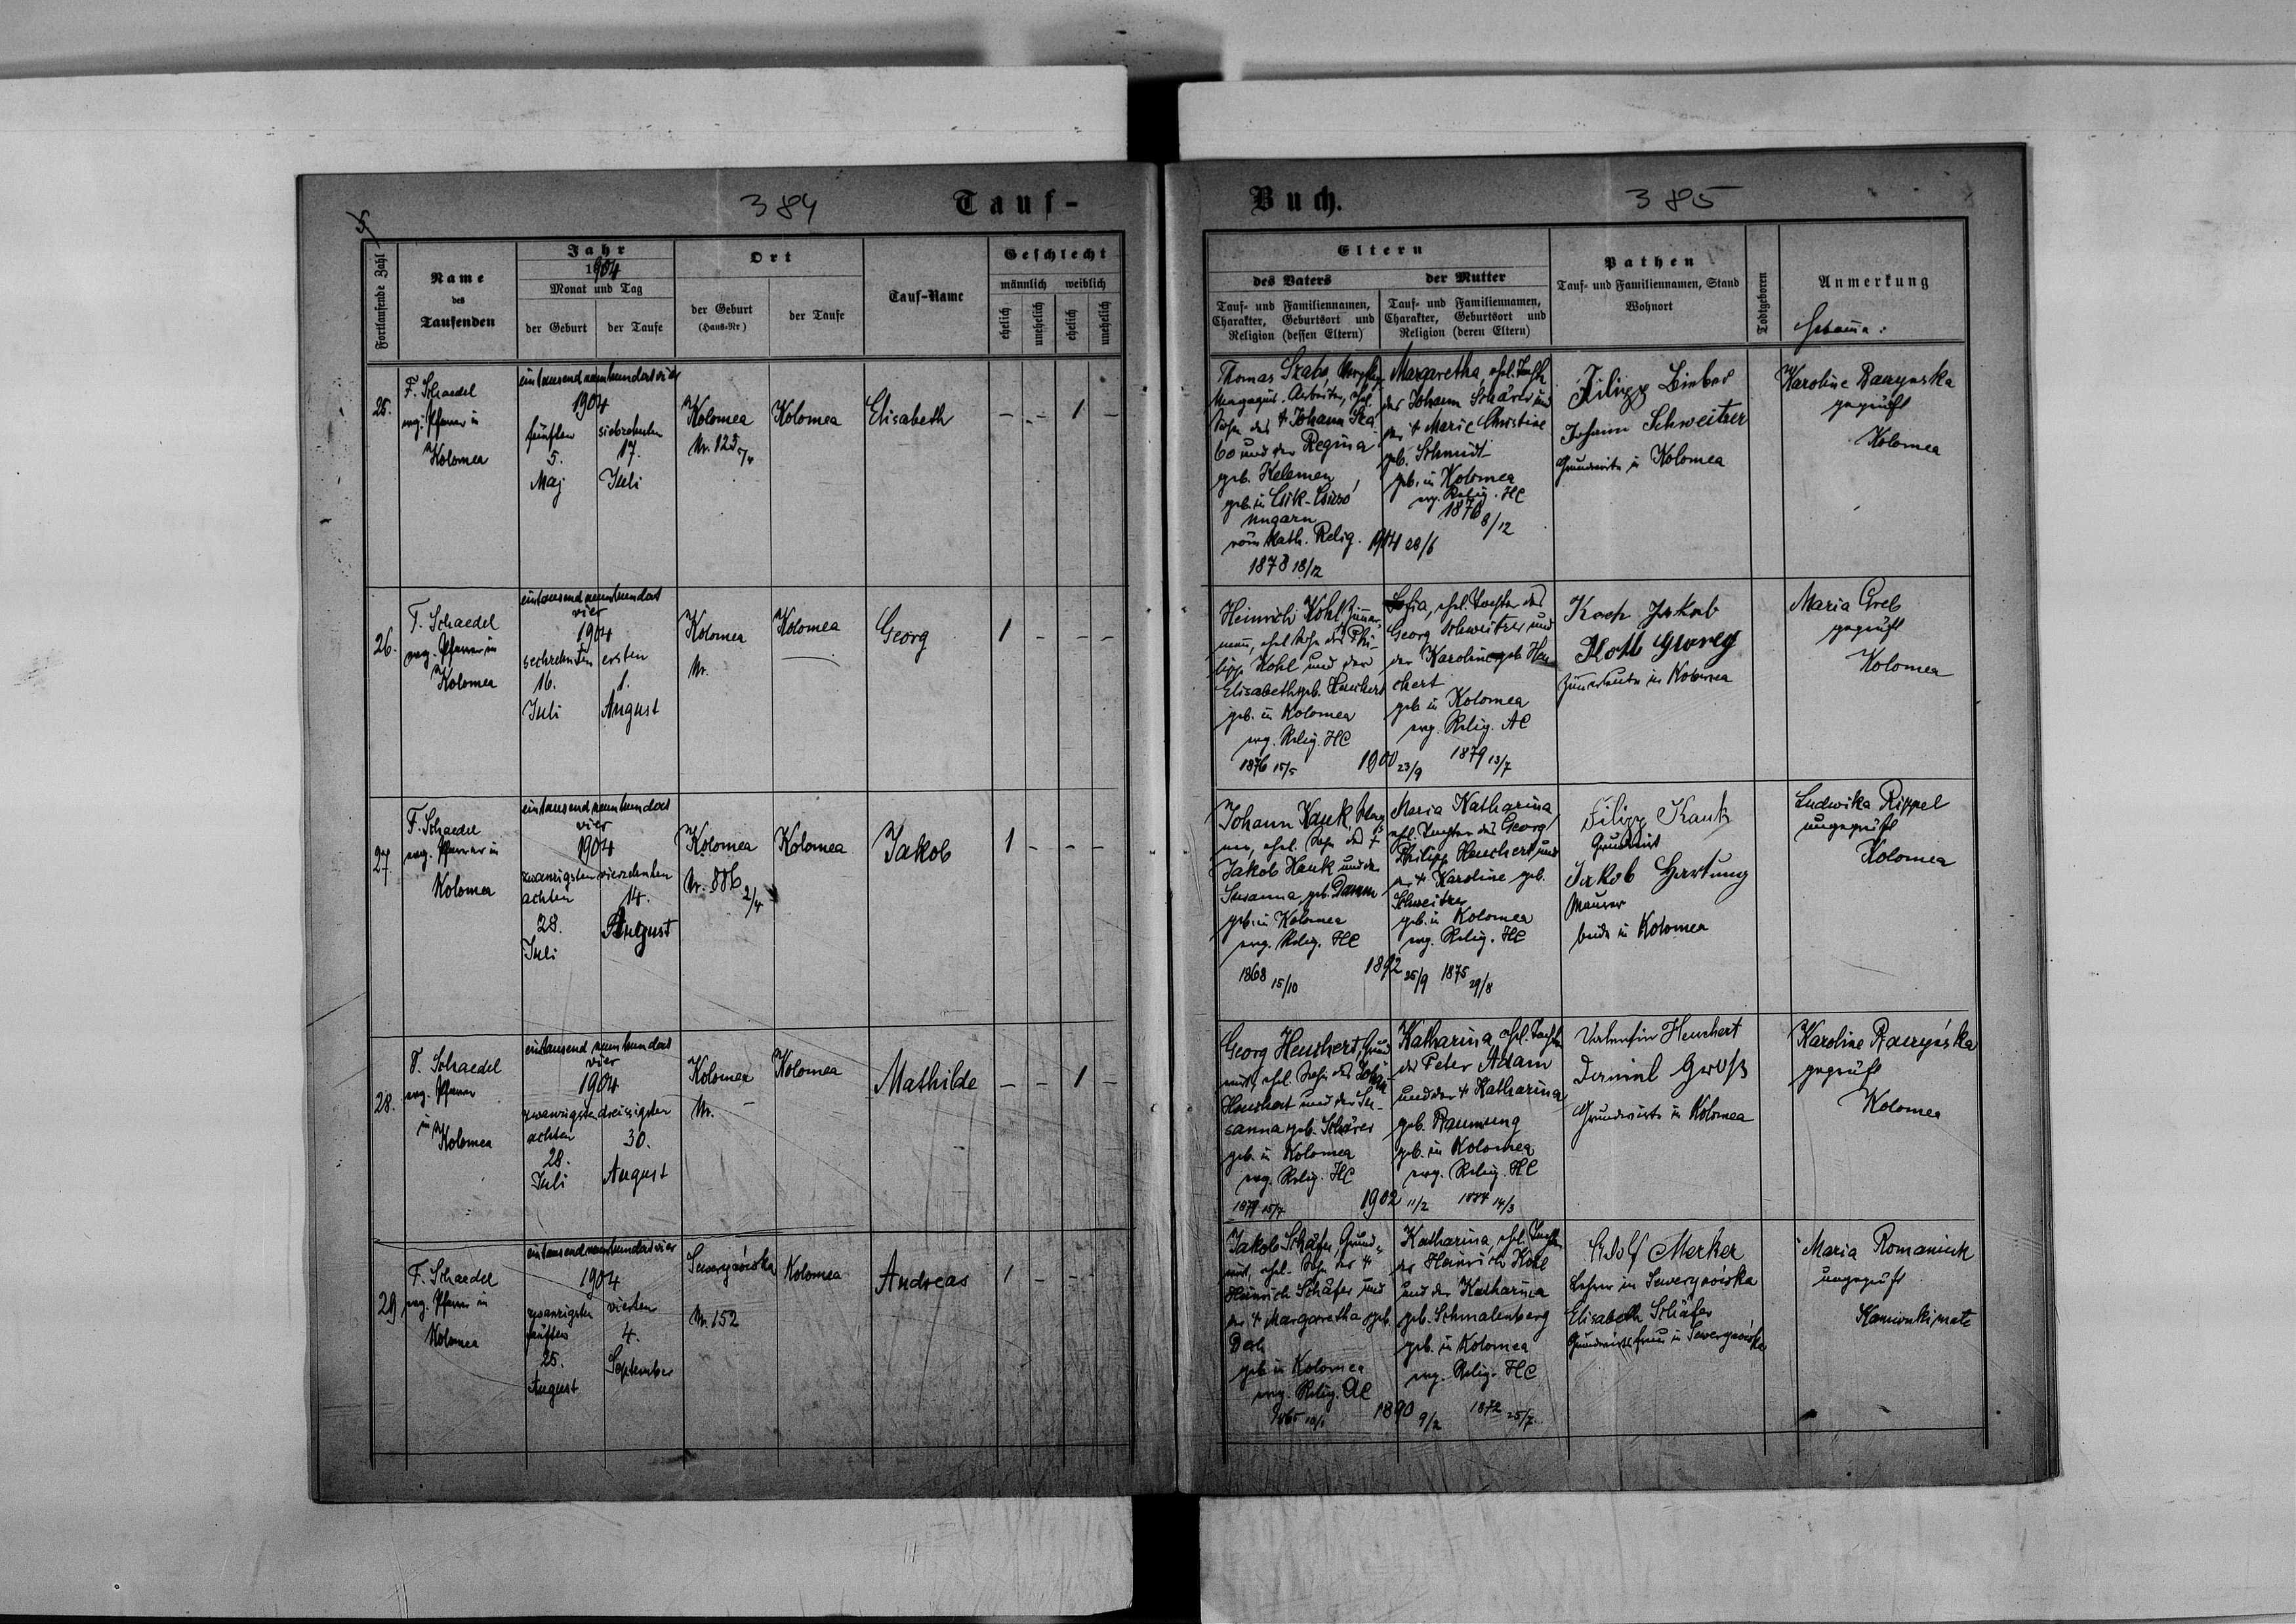 384
Tauf-
Fortlaufende Zahl
Name
des
Taufenden
Jahr
1904
Monat und Tag
der Geburt
der Taufe
Ort
der Geburt
(Haus-Nr)
der Taufe
Tauf-Name
Geschlecht
männlich
weiblich
ehelich
unehelich
ehelich
unehelich
25.
F. Schaedel
evg. Pfarrer in
Kolomea
eintausend neunhundert vier
1904
fünften
5.
Maj
siebzehnten
17.
Juli
Kolomea
Nr. 123
Kolomea
Elisabeth
- - 1 -
26.
F. Schaedel
evg. Pfarrer in
Kolomea
eintausend neunhundert
vier
1904
sechzehnten
16.
Juli
ersten
1.
August
Kolomea
Nr.
Kolomea
Georg
1 - - -
27.
F. Schaedel
evg. Pfarrer in
Kolomea
eintausend neunhundert
vier
1904
zwanzigsten
achten
28.
Juli
vierzehnten
14.
August
Kolomea
Nr. 886
2/4
Kolomea
Jakob
1 - - -
28.
F. Schaedel
evg. Pfarrer
in
Kolomea
eintausend neunhundert
vier
1904
zwanzigsten
achten
28.
Juli
dreissigsten
30.
August
Kolomea
Nr. -
Kolomea
Mathilde
- - 1 -
29
F. Schaedel
evg. Pfarrer in
Kolomea
eintausend neunhundert vier
1904
zwanzigsten
fünften
25.
August
vierten
4.
September
Sewerynówka
Nr. 152
Kolomea
Andreas
1 - - -
Buch.
385
Eltern
des Vaters
Tauf- und Familiennamen,
Charakter, Geburtsort und
Religion (dessen Eltern)
der Mutter
Tauf- und Familiennamen,
Charakter, Geburtsort und
Religion (deren Eltern)
Pathen
Tauf- und Familiennamen, Stand
Wohnort
Todtgeboren
Anmerkung
Thomas Szabó
Arbeiter, ehel.
Sohn des † Johann Sza
bó und der Regina
geb. Kelemen
geb. in Csik-
Ungarn
röm. kath. Relig.
1878 18/12
1904 28/6
Margaretha, ehel. Tocht
des Johann Schärer und
der † Marie Christine
geb. Schmidt
geb. in Kolomea
evg. Relig. HC
1876 8/12
Filipp
Johann Schweitzer
Grundwirte in Kolomea
Karoline
geprüft
Kolomea
Heinrich Kohl, Zimmer
mann, ehel. Sohn des Phi-
lipp Kohl und der
Elisabeth geb. Heuchert
geb. in Kolomea
evg. Relig. HC
1876 15/5
1900 23/9
Sofia, ehel. Tochter des
Georg Schweitzer und
der Karoline geb. Heu
chert
geb. in Kolomea
evg. Relig. AC
1879 13/7
Koch Jakob
Georg
Zimmerleute in Kolomea
Maria Greb
geprüft
Kolomea
Johann Kauk,
ehel. Sohn des †
Jakob Kauk und der
Susanna geb. Damm
geb. in Kolomea
evg. Relig. HC
1868 15/10
1892 25/9
Maria Katharina
ehel. Tochter des Georg
Philipp Heuchert und
der † Karoline geb.
Schweitzer
geb. in Kolomea
evg. Relig. HC
1875 29/8
Filipp Kauk
Grundwirt
Jakob Hartung
Maurer
beide in Kolomea
Ludwika Rippel
ungeprüft
Kolomea
Georg Heuchert, Grund
wirt, ehel. Sohn des
Heuchert und der Su-
sanna geb. Schärer
geb. in Kolomea
evg. Relig. HC
1879 15/7
1902 11/2
Katharina, ehel. Tochter
des Peter Adam
und der † Katharina
geb. Baumung
geb. in Kolomea
evg. Relig. HC
1884 14/3
Valentin Heuchert
Daniel Groß
Grundwirte in Kolomea
Karoline
geprüft
Kolomea
Jakob Schäfer, Grund-
wirt, ehel. Sohn des †
Heinrich Schäfer und
der † Margaretha geb.
geb. in Kolomea
evg. Relig. AC
1865
1890 9/2
Katharina, ehel. Tochter
des Heinrich Kohl
und der Katharina
geb. Schmalenberg
geb. in Kolomea
evg. Relig. HC
1872 25/7
Adolf Merker
Lehrer in Sewerynówka
Elisabeth Schäfer
Grundwirtsfrau in Sewerynówka
Maria Romaniuk
ungeprüft